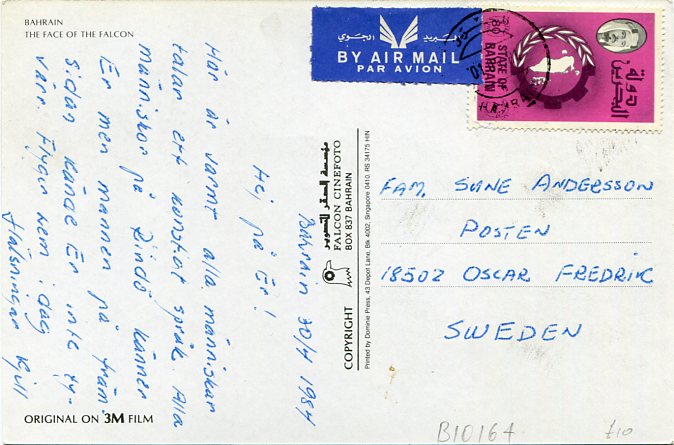 BAHRAIN
THE FACE OF THE FALCON
البريد الجوي
BY AIR MAIL
PAR AVION
STATE OF
BAHRAIN
دولة
البحرين
80
Bahrain 30/4 1984
Hej på Er!
Här är varmt alla människor
talar ett konstigt språk. Alla
människor på Rindö känner
Er men mannen på fram
sidan kände Er inte ty-
värr. Flyger hem idag
Hälsningar Kjell
مؤسسة الصقر للتصوير
FALCON CINEFOTO
BOX 837 BAHRAIN
COPYRIGHT
Printed by Dominie Press, 43 Depot Lane, Blk 4002, Singapore 0410. RS 34175 HIN
FAM. SUNE ANDERSSON
POSTEN
18502 OSCAR FREDRIK
SWEDEN
ORIGINAL ON 3M FILM
B10164
£10